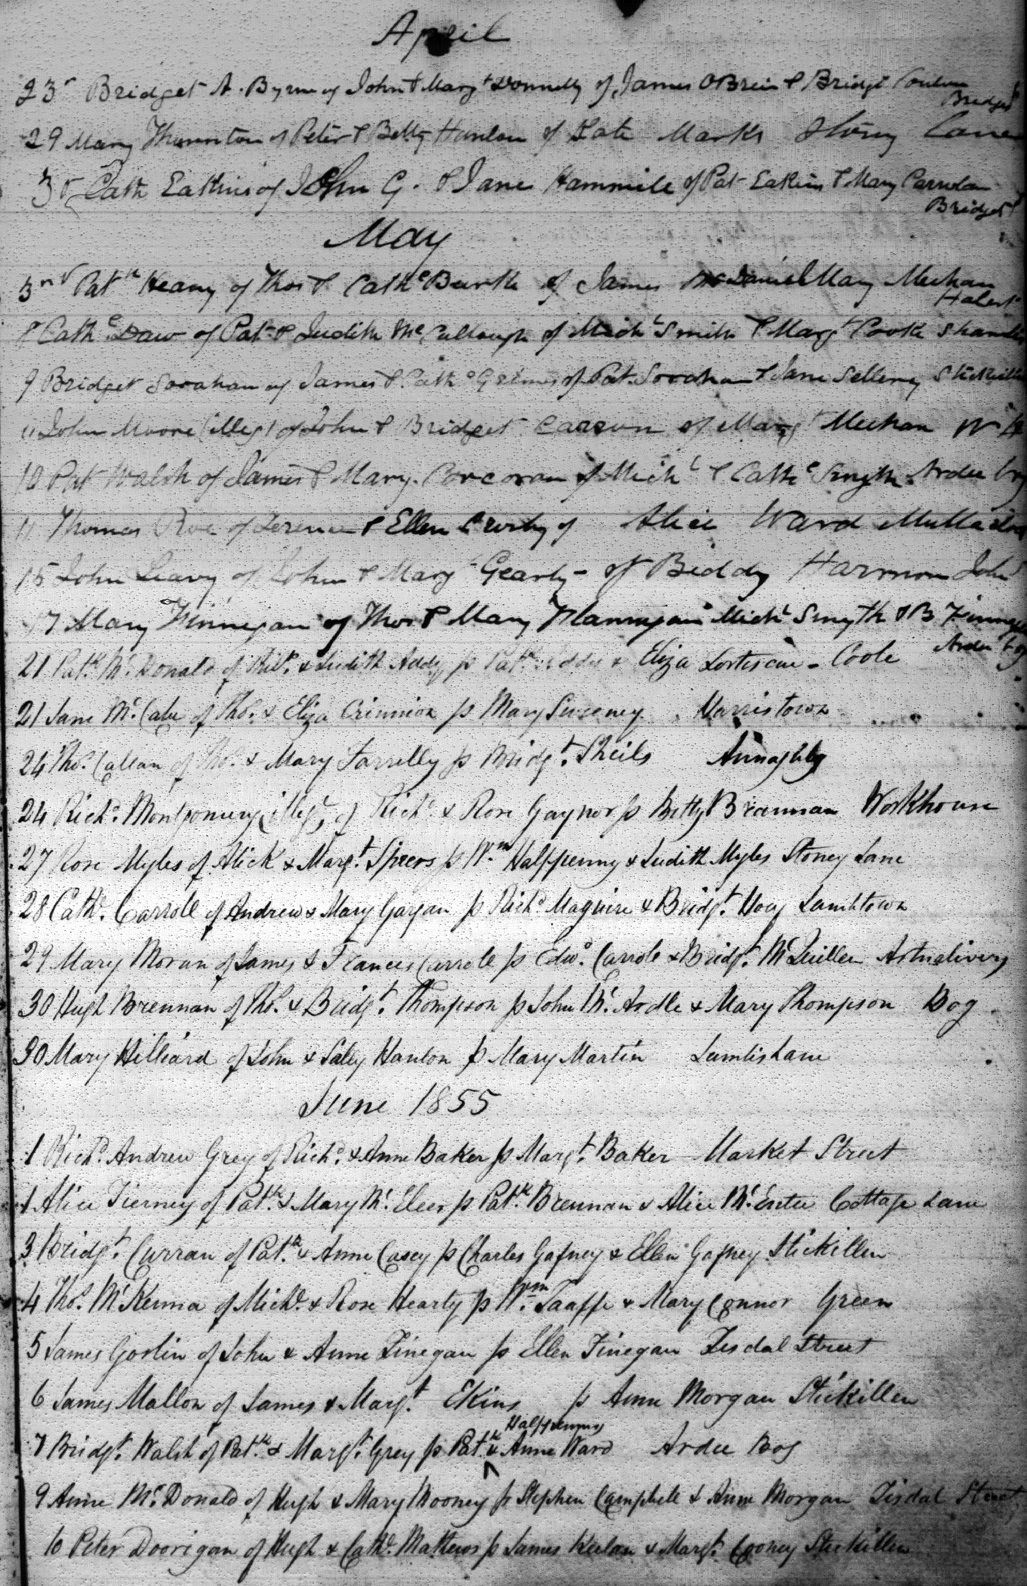 April
23 Bridget A. Byrne of John & Margt Donnelly of James OBrein & Bridgt
Bridget
29 Mary Thornton of Peter & Betty Hanlon of Kate Marks Stoney Lane
30 Cath Eakins of John G. & Jane Hammile of Pat Eakins & Mary Carrolan
Bridget
May
3rd Patk Heany of Thos & Cathe Burke of James McDaniel Mary Meehan
Hales
Cathe Daw of Pat & Judith McCullough of Michl Smith & Margt Cooke
9 Bridget Sorahan of James & Cathe Grimes of Pat Sorahan & Jane Stickillin
11 John Moore (illegt) of John & Bridget Carson of Margt Meehan
10 Pat Walsh of James & Mary Corcoran of Michl & Cathe Smyth Ardee
11 Thomas Roe of Terence & Ellen of Alice Ward
15 John Leavy of John & Margt Gearty - of Biddy Harmon John
17 Mary Finnegan of Thos & Mary Flannigan Michl Smyth & B Finnegan
Ardee Bog
21 Patk McDonald of Phil. & Judith Addy ps Patk Addy & Eliza Fortescue - Coole
21 Jane McCabe of Thos. & Eliza Crinnion ps Mary Sweeney Harristown
24 Thos. Callan of Thos. & Mary Farrelly ps Bridgt. Sheils
24 Richd. Montgomery (illegt) of Richd. & Rose Gaynor ps Betty Brennan Workhouse
27 Rose Myles of Alick & Margt. Speers ps Wm Halfpenny & Judith Myles Stoney Lane
28 Cathe. Carroll of Andrew & Mary Gargan ps Richd Maguire & Bridgt. Hoey Lambtown
29 Mary Moran of James & Frances Carrole ps Edwd. Carrole & Bridgt. McQuillen Artnalivery
30 Hugh Brennan of Thos. & Bridgt. Thompson ps John McArdle & Mary Thompson Bog
30 Mary Hilliard of John & Saley Hanlon ps Mary Martin Lambs Lane
June 1855
1 Richd. Andrew Grey of Richd. & Anne Baker ps Margt. Baker Market Street
1 Alice Tierney of Patk. & Mary Mc ps Patk. Brennan & Alice McEntee Cottage Lane
3 Bridgt. Curran of Patk. & Anne Casey ps Charles Gafney & Ellen Gafney Stickillen
4 Thos. McKenna of Michl. & Rose Hearty ps Wm. Taaffe & Mary Connor Green
5 James Gorlin of John & Anne Finegan ps Ellen Finegan Tisdal Street
6 James Mallon of James & Margt. Ekins ps Anne Morgan Stickillen
Halfpenny
7 Bridgt. Walsh of Patk. & Margt. Grey ps Patk. & Anne Ward Ardee Bog
9 Anne McDonald of Hugh & Mary Mooney ps Stephen Campbell & Anne Morgan Tisdal Street
10 Peter Doorigan of Hugh & Cathe. Mathews ps James Keelan & Margt. Cooney Stickillen